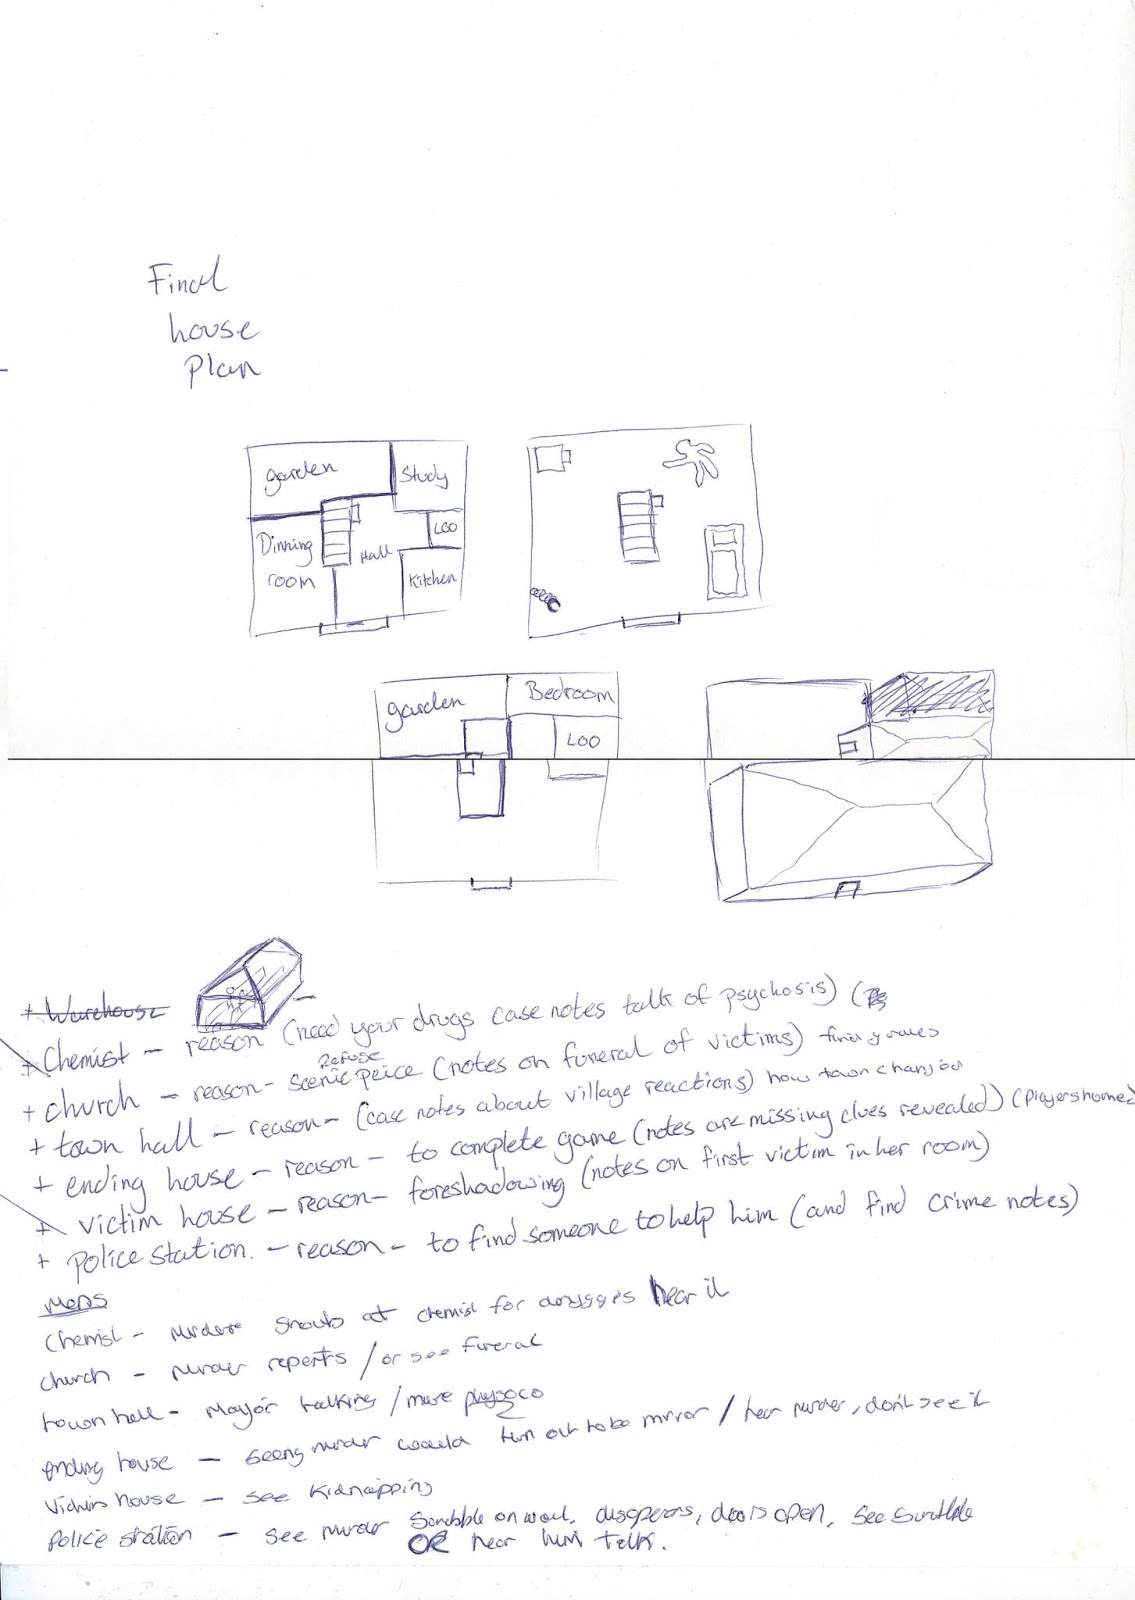 Final
house
Plan
garden
Study
Dinning
room
Hall
LOO
Kitchen
garden
Bedroom
LOO
+ Warehouse
+ Chemist - reason (need your drugs case notes talk of psychosis)
+ church - reason - scenic peice (notes on funeral of victims)
refuse
+ town hall - reason - (case notes about village reactions) how town changed
+ ending house - reason - to complete game (notes are missing clues revealed) (players home)
+ victim house - reason - foreshadowing (notes on first victim in her room)
+ Police station. - reason - to find someone to help him (and find crime notes)
Chemist - shouts at chemist for hear it
church - reports / or see funeral
town hall - Mayor talking / more
ending house - seeing turn out to be mirror / hear murder, don't see it
Victim house - see kidnapping
Police station - see Scribble on wall, disapears, doors open, see scribble
OR hear him talk.